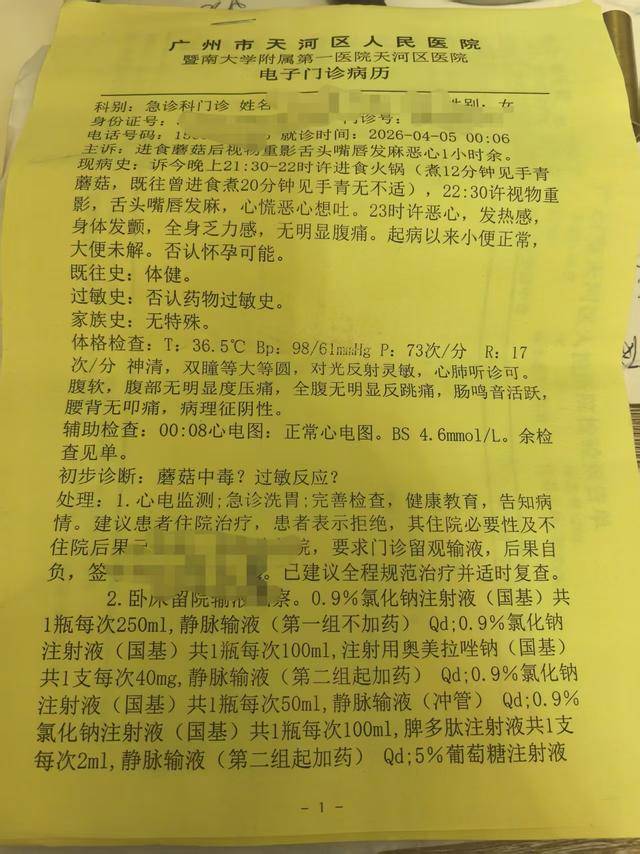 广州市天河区人民医院
暨南大学附属第一医院天河区医院
电子门诊病历
科别: 急诊科门诊 姓名 性别: 女
身份证号: 门诊号:
电话号码: 15 就诊时间: 2026-04-05 00:06
主诉: 进食蘑菇后视物重影舌头嘴唇发麻恶心1小时余。
现病史: 诉今晚上21:30-22时许进食火锅（煮12分钟见手青
蘑菇, 既往曾进食煮20分钟见手青无不适）, 22:30许视物重
影, 舌头嘴唇发麻, 心慌恶心想吐。23时许恶心, 发热感,
身体发颤, 全身乏力感, 无明显腹痛。起病以来小便正常,
大便未解。否认怀孕可能。
既往史: 体健。
过敏史: 否认药物过敏史。
家族史: 无特殊。
体格检查: T: 36.5℃ Bp: 98/61mmHg P: 73次/分 R: 17
次/分 神清, 双瞳等大等圆, 对光反射灵敏, 心肺听诊可。
腹软, 腹部无明显压痛, 全腹无明显反跳痛, 肠鸣音活跃,
腰背无叩痛, 病理征阴性。
辅助检查: 00:08心电图: 正常心电图。BS 4.6mmol/L。余检
查见单。
初步诊断: 蘑菇中毒? 过敏反应?
处理: 1.心电监测;急诊洗胃;完善检查, 健康教育, 告知病
情。建议患者住院治疗, 患者表示拒绝, 其住院必要性及不
住院后果 院, 要求门诊留观输液, 后果自
负, 签 。已建议全程规范治疗并适时复查。
2.卧床留院输液 察。0.9%氯化钠注射液（国基）共
1瓶每次250ml,静脉输液（第一组不加药） Qd;0.9%氯化钠
注射液（国基）共1瓶每次100ml,注射用奥美拉唑钠（国基）
共1支每次40mg,静脉输液（第二组起加药） Qd;0.9%氯化钠
注射液（国基）共1瓶每次50ml,静脉输液（冲管） Qd;0.9%
氯化钠注射液（国基）共1瓶每次100ml,脾多肽注射液共1支
每次2ml,静脉输液（第二组起加药） Qd;5%葡萄糖注射液
- 1 -